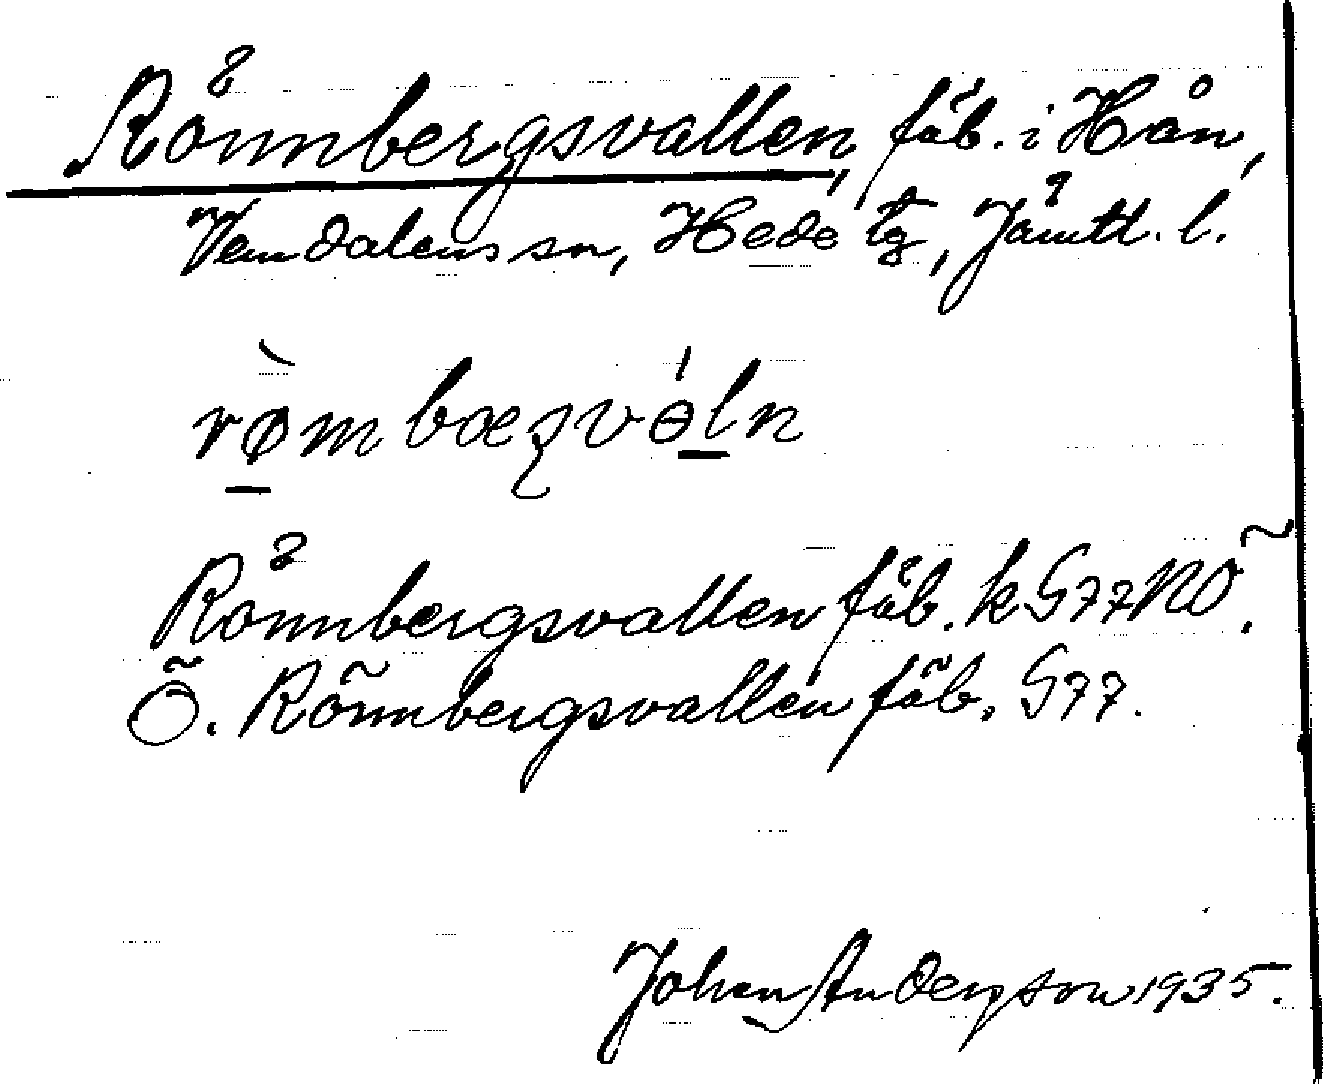 Rönnbergsvallen, fäb. i Hån,
Vemdalens sn, Hede tg, Jämtl. l.
rø̀mbæʂvə́ln
Rönnbergsvallen fäb. k G77NÖ.
Ö. Rönnbergsvallen fäb. G77.
Johan Anderson 1935.